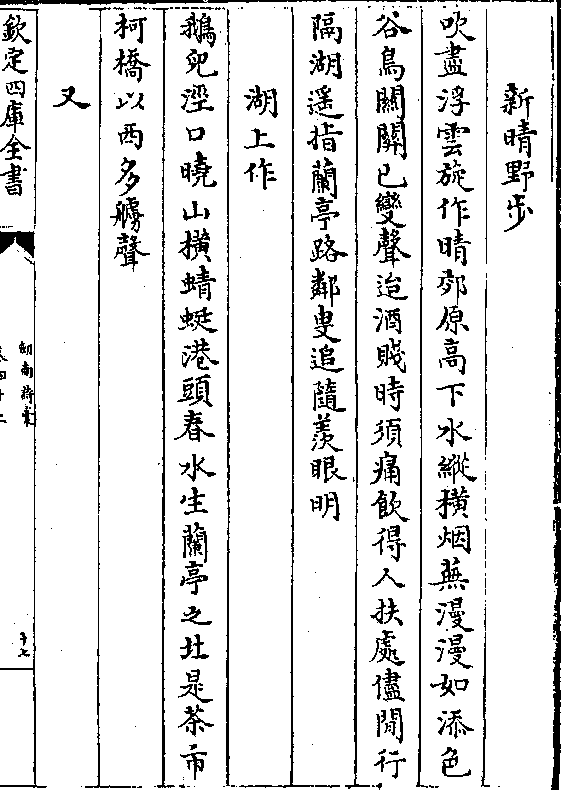 新晴野步
吹盡浮雲旋作晴郊原高下水縱横烟蕪漫漫如添色
谷鳥關關已變聲迨酒賤時須痛飲得人扶處儘閒行
隔湖遥指蘭亭路鄰叟追隨羡眼明
湖上作
鵝兒涇口曉山横蜻蜓港頭春水生蘭亭之北是茶市
柯橋以西多艣聲
又
欽定四庫全書
劒南詩稾
卷四十二
十七